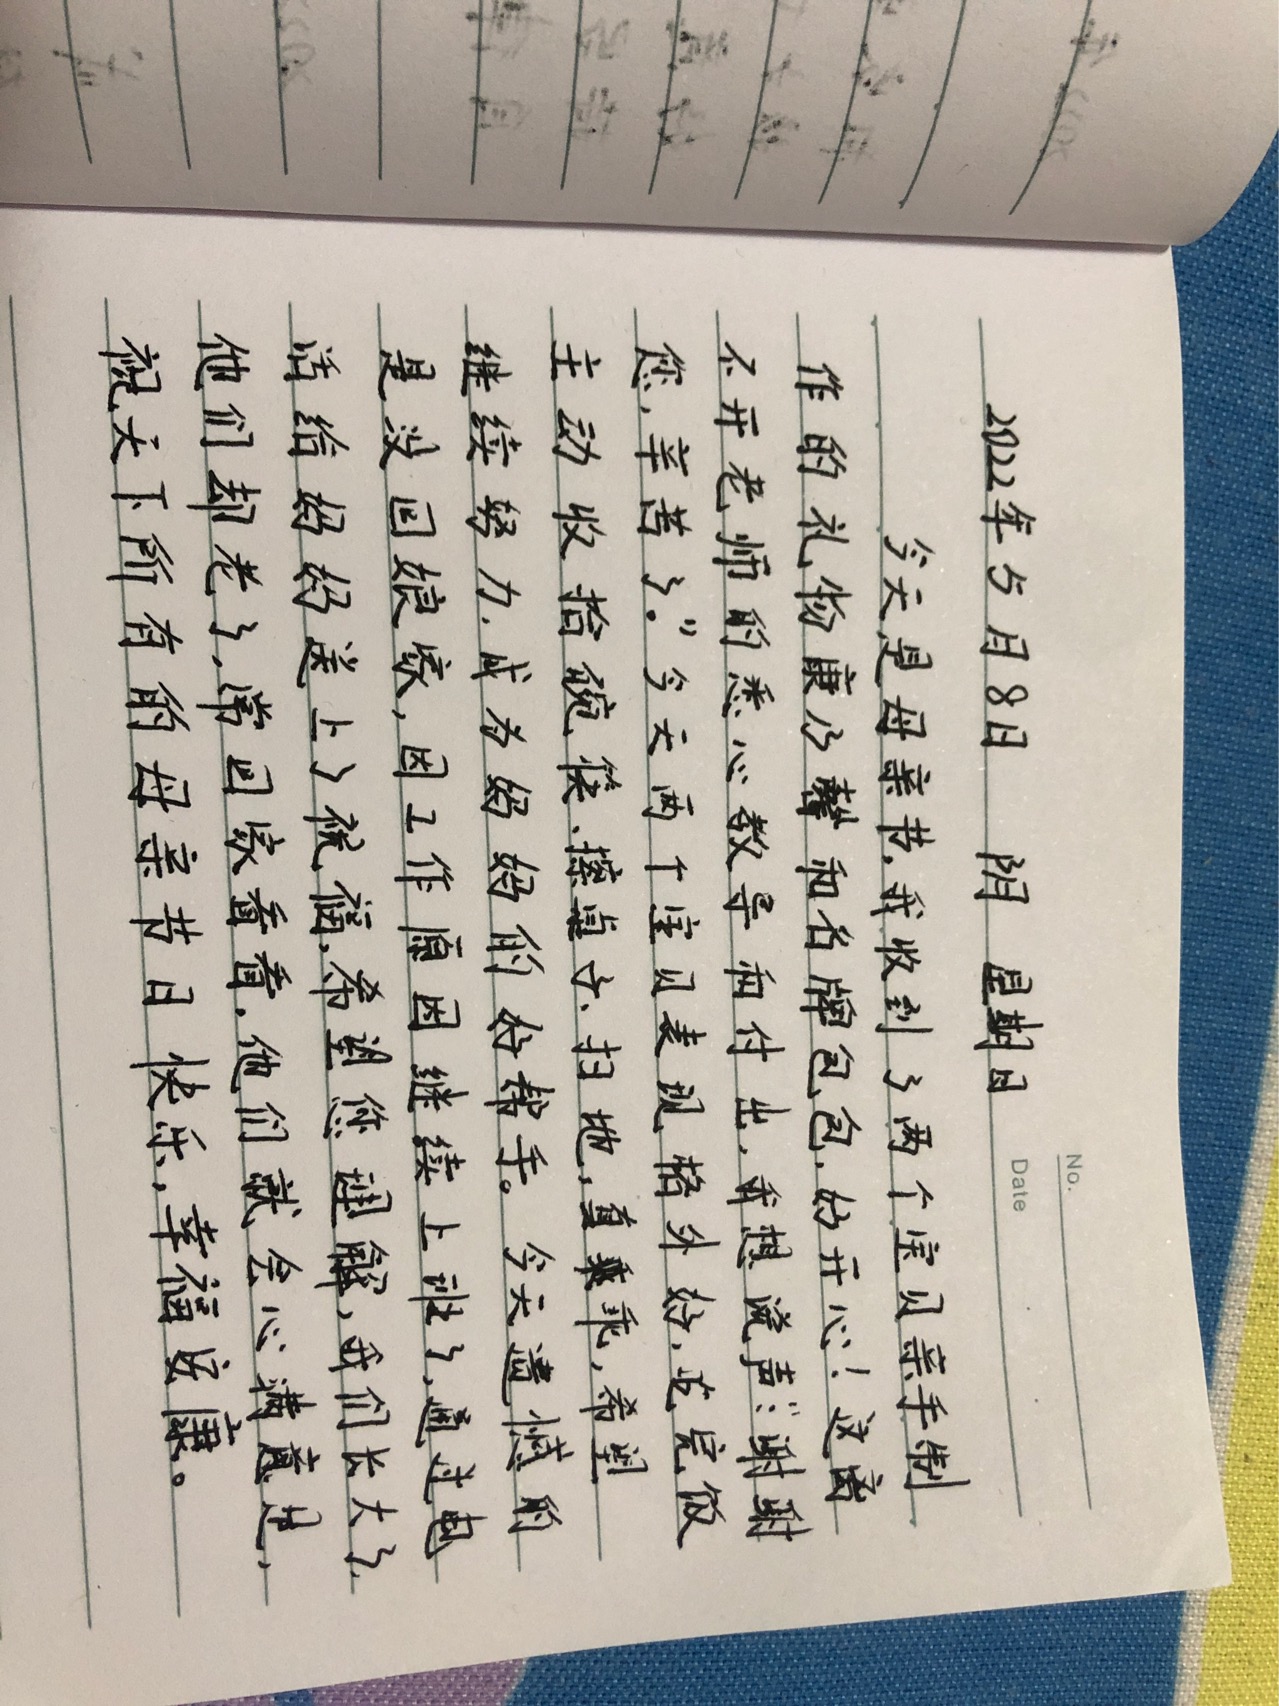 No.
Date
2022年5月8日 阴 星期日
今天是母亲节，我收到了两个宝贝亲手制
作的礼物康乃馨和名牌包包，好开心！这离
不开老师的悉心教导和付出，我想说声：“谢谢
您，辛苦了。”今天两个宝贝表现格外好，吃完饭
主动收拾碗筷、擦桌子、扫地，真乘乖，希望
继续努力，成为妈妈的好帮手。今天遗憾的
是没回娘家，因工作原因继续上班了，通过电
话给妈妈送上了祝福，希望您理解，我们长大了，
他们却老了，常回家看看，他们就会心满意足，
祝天下所有的母亲节日快乐，幸福安康。